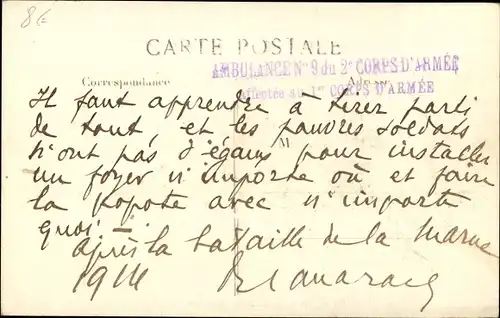 8€
CARTE POSTALE
AMBULANCE Nº 9 du 2e CORPS D'ARMÉE
Correspondance
Adresse
affectée au 1er CORPS D'ARMÉE
Il faut apprendre à tirer parti
de tout, et les pauvres soldats
n'ont pas d'égaux pour installer
M
un foyer n'importe où et faire
la popote avec n'importe
quoi. —
après la bataille de la Marne
1914